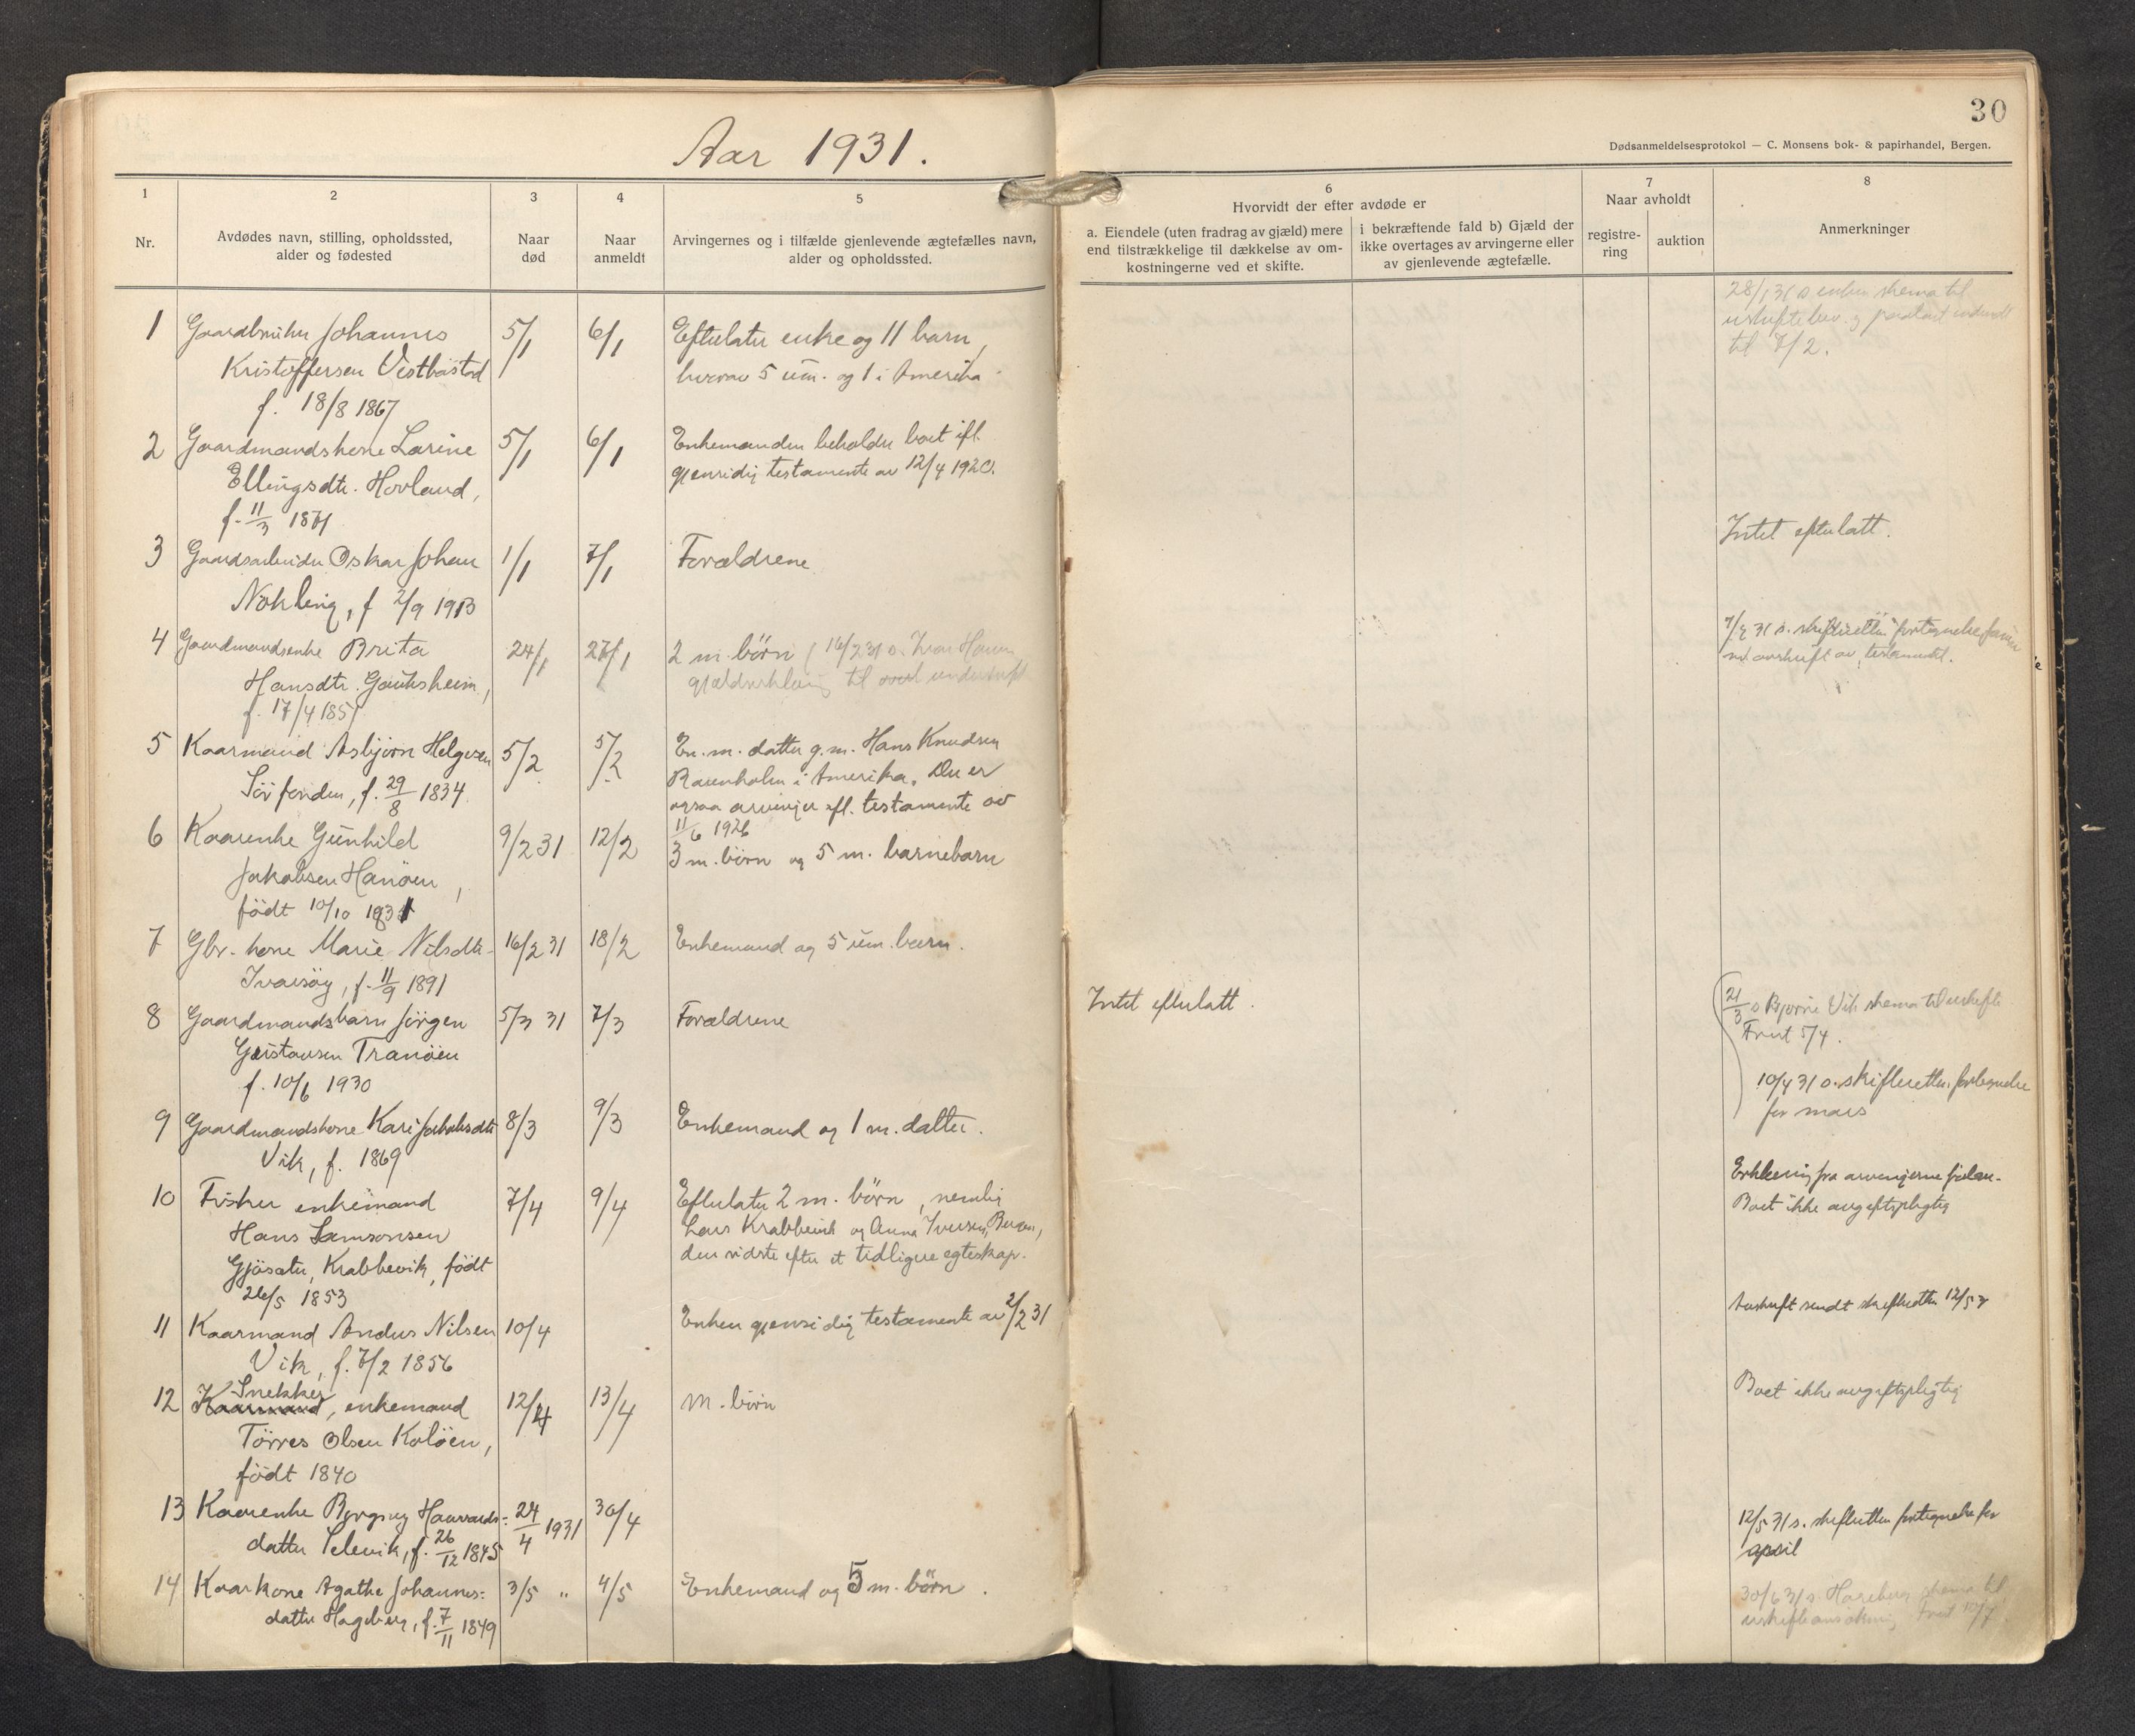 Aar 1931.
30
Dødsanmeldelsesprotokol — C. Monsens bok- & papirhandel, Bergen.
1
Nr.
2
Avdødes navn, stilling, opholdssted,
alder og fødested
3
Naar
død
4
Naar
anmeldt
5
Arvingernes og i tilfælde gjenlevende ægtefælles navn,
alder og opholdssted.
6
Hvorvidt der efter avdøde er
a. Eiendele (uten fradrag av gjæld) mere
end tilstrækkelige til dækkelse av om-
kostningerne ved et skifte.
i bekræftende fald b) Gjæld der
ikke overtages av arvingerne eller
av gjenlevende ægtefælle.
7
Naar avholdt
registre-
ring
auktion
8
Anmerkninger
1 Gaardbruker Johannes 5/1 6/1 Efterlater enke og 11 barn,
Kristoffersen Vestbøstad hvorav 5 um. og 1 i Amerika
f. 18/8 1867
28/1 31 s. enken skema til
uskiftebev. og
til 7/2.
2 Gaardmandskone Larine 5/1 6/1 Enkemanden beholder boet ifl.
Ellingsdtr. Hovland, gjensidig testamente av 12/4 1920.
f. 11/3 1871
3 Gaardsarbeider Oskar Johan 1/1 7/1 Forældrene Intet efterlatt.
Nökling, f 2/9 1913
4 Gaardmandsenke Brita 24/1 27/1 2 m. börn (16/2 31 s. Ivar
Hansdtr. Gauksheim, til
f. 17/4 1851
31 s. skifteretten fortegnelse
m. avskrift av testamentet.
5 Kaarmand Asbjörn Helgesen 5/2 5/2 En. m. datter g.m. Hans Knudsen
f. 29/8 1834. Ravnholm i Amerika. Du er
ogsaa arvinger efl. testamente av
11/6 1926
6 Kaarenke Gunhild 9/2 31 12/2 3 m. börn og 5 m. barnebarn
Jakobsen Hanöen,
födt 10/10 1831
7 Gbr. kone Marie Nilsdtr. 16/2 31 18/2 Enkemand og 5 um. barn.
Ivarsöy, f. 11/9 1891
8 Gaardmandsbarn Jörgen 5/3 31 7/3 Forældrene Intet efterlatt.
Gustavsen Tranöen
f. 10/6 1930
21/3 s Bjarne Vik skema til uskifte.
Frist 5/4.
10/4 31 s. skifteretten fortegnelse
for mars
9 Gaardmandskone Kari Jakobsdtr 8/3 9/3 Enkemand og 1 m. datter.
Vik, f. 1869
10 Fisker enkemand 7/4 9/4 Efterlater 2 m. börn, nemlig
Hans Samsonsen Lars Krabbevik og Anna Iversen, Bergen,
Gjösæter, Krabbevik, födt den sidste efter et tidligere egteskap.
26/5 1853
Erklæring fra arvingerne
Boet ikke avgiftspligtig
11 Kaarmand Anders Nilsen 10/4 Enken gjensidig testamente av 2/2 31
Vik, f. 7/2 1856
Avskrift sendt skifteretten 12/5
12 Snekker
Kaarmand, enkemand 12/4 13/4 m. börn Boet ikke avgiftspligtig
Törres Olsen Kolöen,
födt 1840
13 Kaarenke Borgny Haavards- 24/4 1931 30/4
datter Selevik, f. 26/12 1845
12/5 31 s. skifteretten fortegnelse for
april
14 Kaarkone Agathe Johannes- 3/5 " 4/5 Enkemand og 5 m. börn.
datter Hageberg, f. 7/11 1849
30/6 31 s. Hageberg skema til
uskifteansökning Frist 10/7